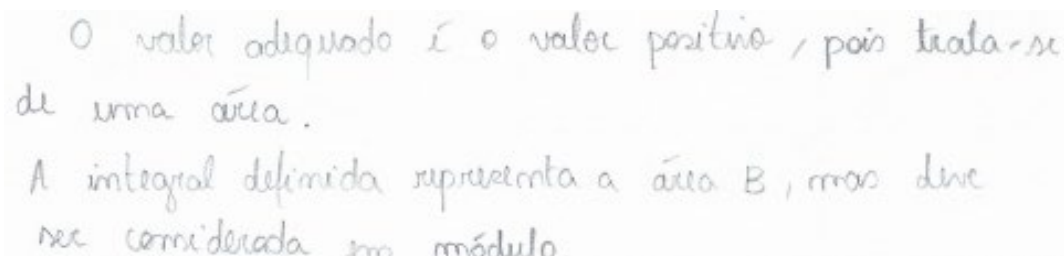 O valor adequado é o valor positivo, pois trata-se
de uma área.
A integral definida representa a área B, mas deve
ser considerada em módulo